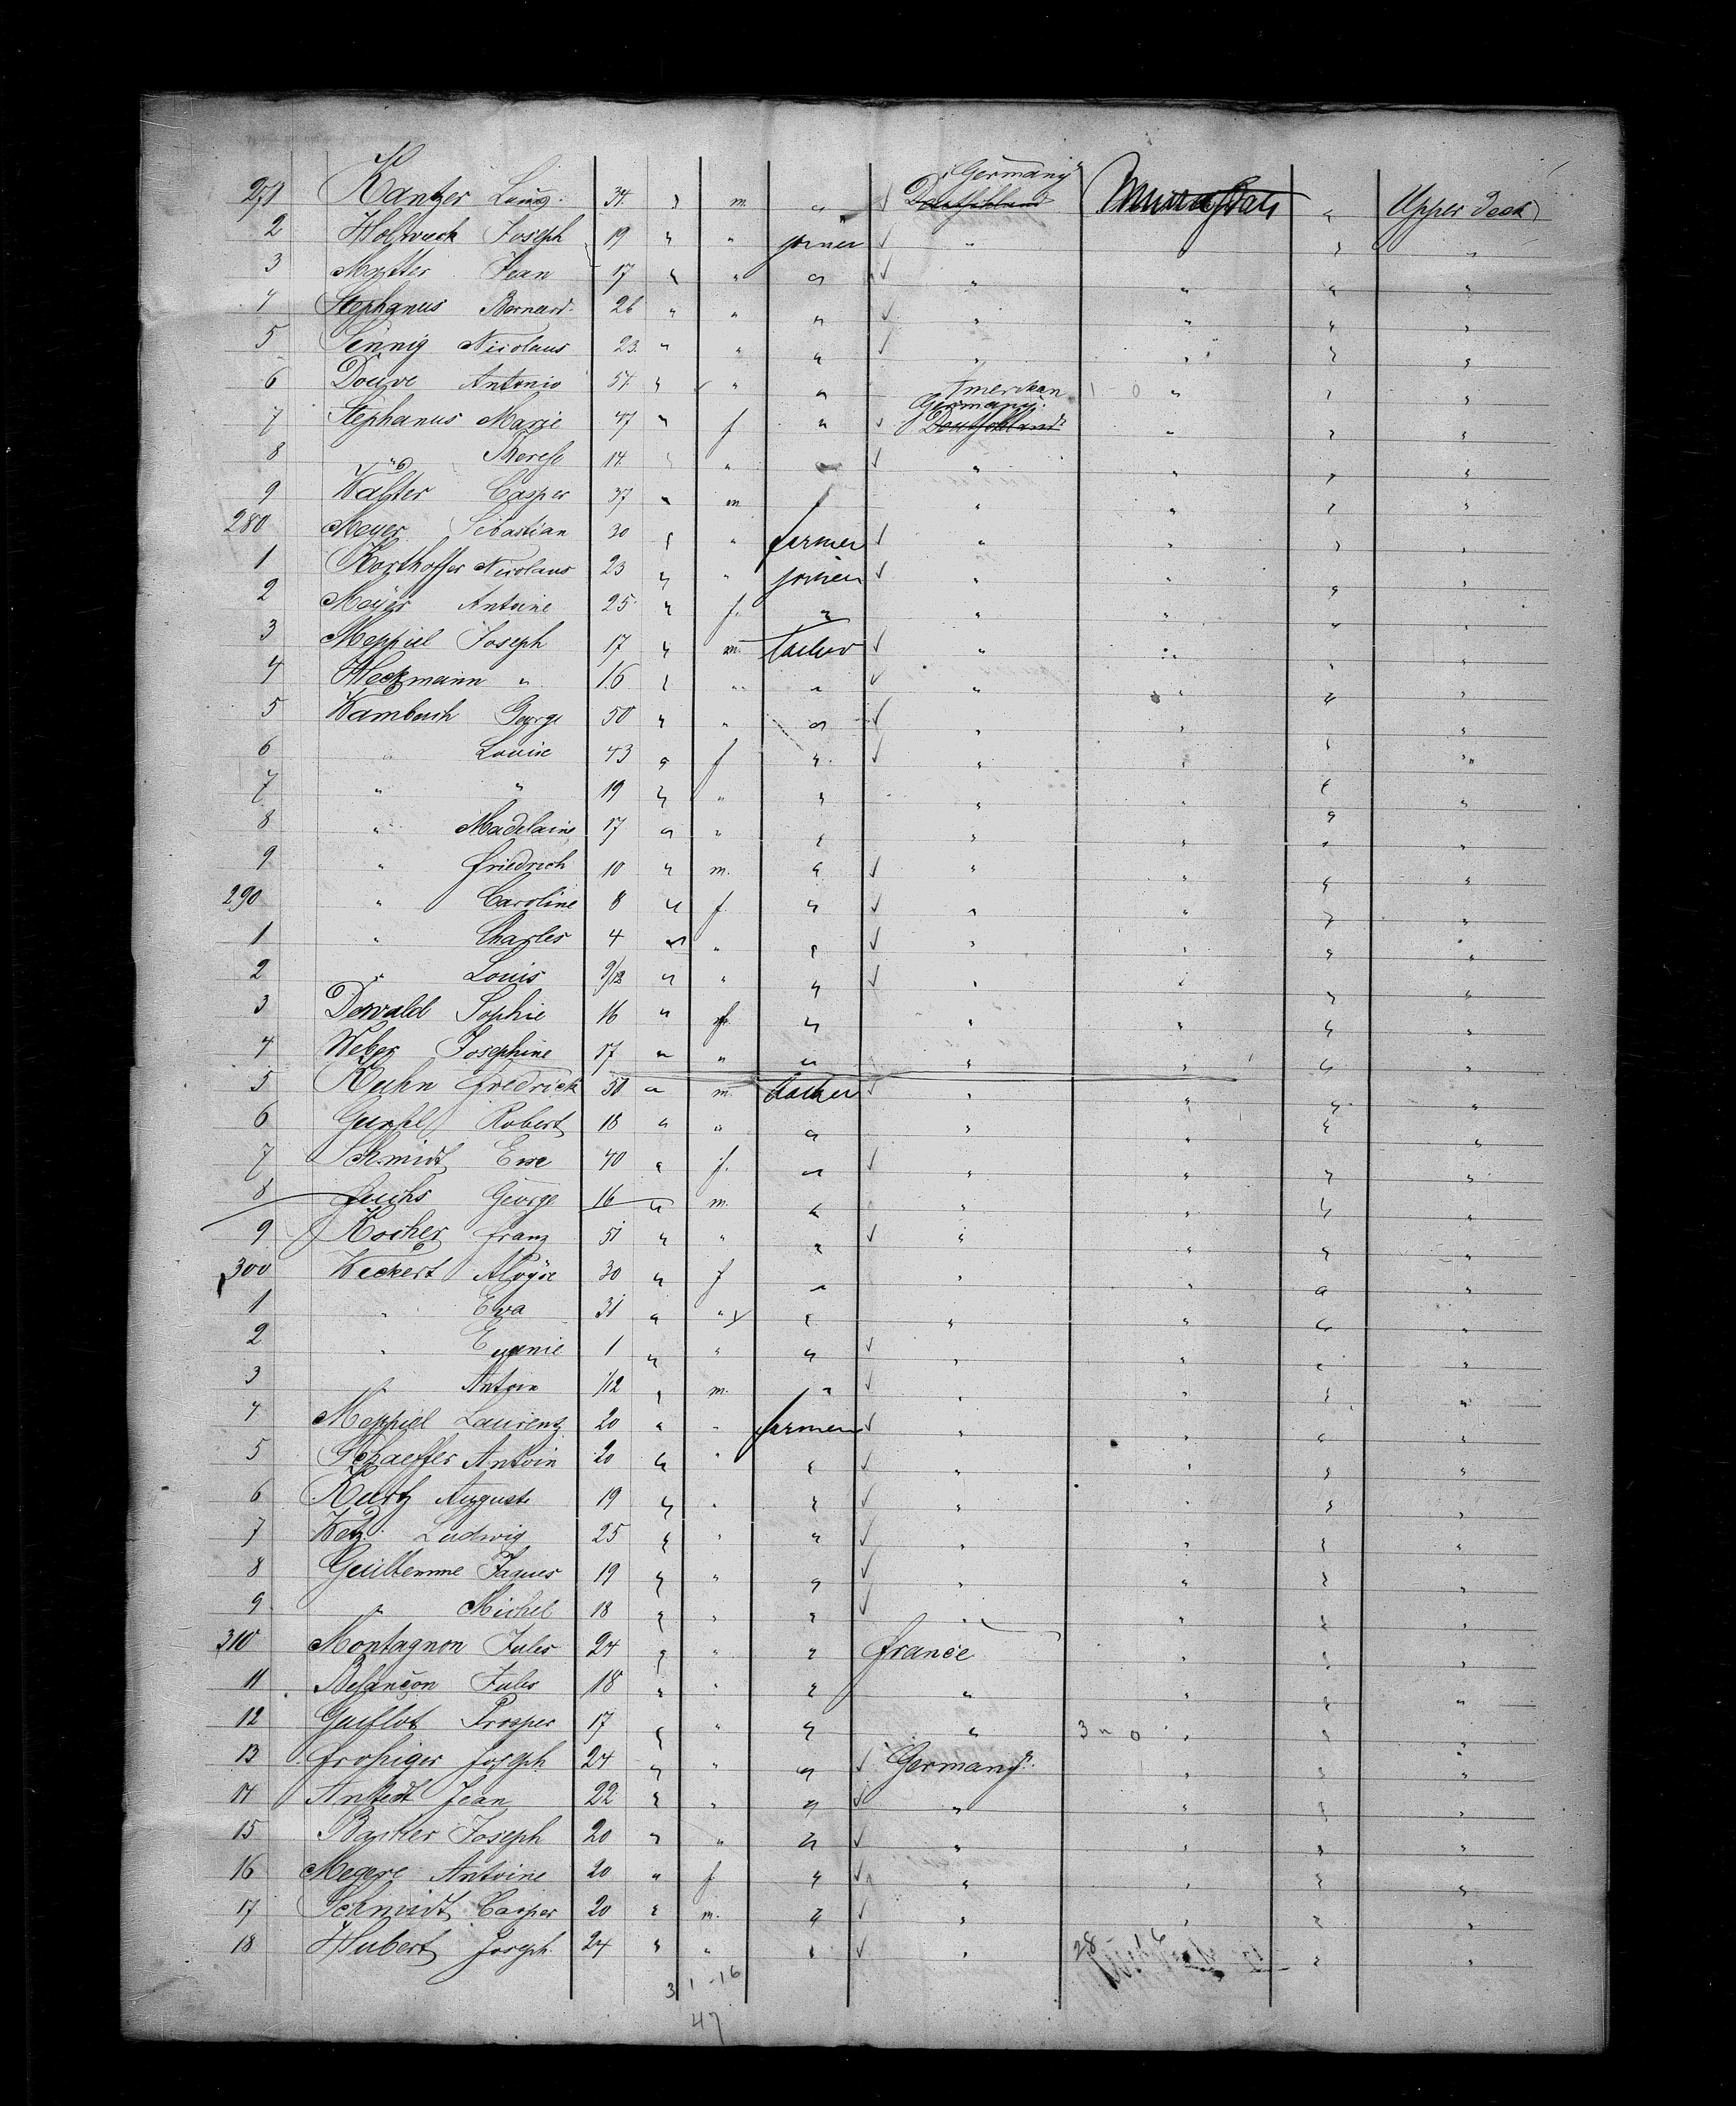 "Germany"
271 Kantzer Louis 34 " m. " ✓ Deutschland United States " Upper deck
2 Holweck Joseph 19 " " joiner ✓ " " " "
3 Mutter Jean 17 " " " ✓ " " " "
4 Stephanus Bernard 26 " " " ✓ " " " "
5 Sennig Nicolaus 23. " " " ✓ " " " "
6 Douve Antonio 54 " " " Amerikan 1 0 " " "
Germany.
7 Stephanus Marie 47 " f " ✓ Deutschland " " "
8 " Therese 14 " " " ✓ " " " "
9 Walter Casper 37 " m " " " "
280 Meyer Sebastian 30 " " farmer ✓ " " " "
1 Korthoffer Nicolaus 23 " " joiner ✓ " " " "
2 Meyer Antoine 25 " f. " " " " "
3 Meppiel Joseph 17 " m. ✓ " " " "
4 Heckmann " 16 " " " ✓ " " " "
5 Wambach George 50 " " " ✓ " " " "
6 " Louise 43 " f " ✓ " " " "
7 " " 19 " " " " " " "
8 " Madelaine 17 " " " " " " "
9 " Friedrich 10 " m. " ✓ " " " "
290 " Caroline 8 " f " ✓ " " " "
1 " Charles 4 " " " ✓ " " " "
2 " Louis 9/12 " " " ✓ " " " "
3 Dowald Sophie 16 " f. " " " " "
4 Weber Josephine 17 " " " " " " "
5 Kuhn Fredrick 50 " m. ✓ " " " "
6 Robert 18 " " " " " " "
7 Schmidt Eve 40 " f. " ✓ " " " "
8 Fuchs George 16 " m. " " " " "
9 Kocher Franz 51 " " " ✓ " " " "
300 Weckert Aloyse 30 " f " " " " "
1 " Eva 31 " " " " " " "
2 " Eugenie 1 " " " ✓ " " " "
3 " Antoin 1/12 " m. " ✓ " " " "
4 Meppiel Laurenz 20 " " farmer ✓ " " " "
5 Schaeffer Antoin 20 " " " ✓ " " " "
6 Kurtz Auguste 19 " " " ✓ " " " "
7 Wetz Ludwig 25 " " " ✓ " " " "
8 Guillemme Jaques 19 " " " ✓ " " " "
9 " Michel 18 " " " ✓ " " " "
310 Montagnon Jules 24 " " " France " " "
11 Besançon Jules 18 " " " " " " "
12 Guillot Prosper 17 " " " " 3 " 0 " " "
13 Froshiger Joseph 24 " " " ✓ Germany " " "
14 Anstedt Jean 22 " " " ✓ " " " "
15 Joseph 20 " " " ✓ " " " "
16 Megere Antoine 20 " f " ✓ " " " "
17 Schmidt Casper 20 " m. " ✓ " " " "
18 Hubert Joseph 24 " " " ✓ " 28 " "
31-16
47